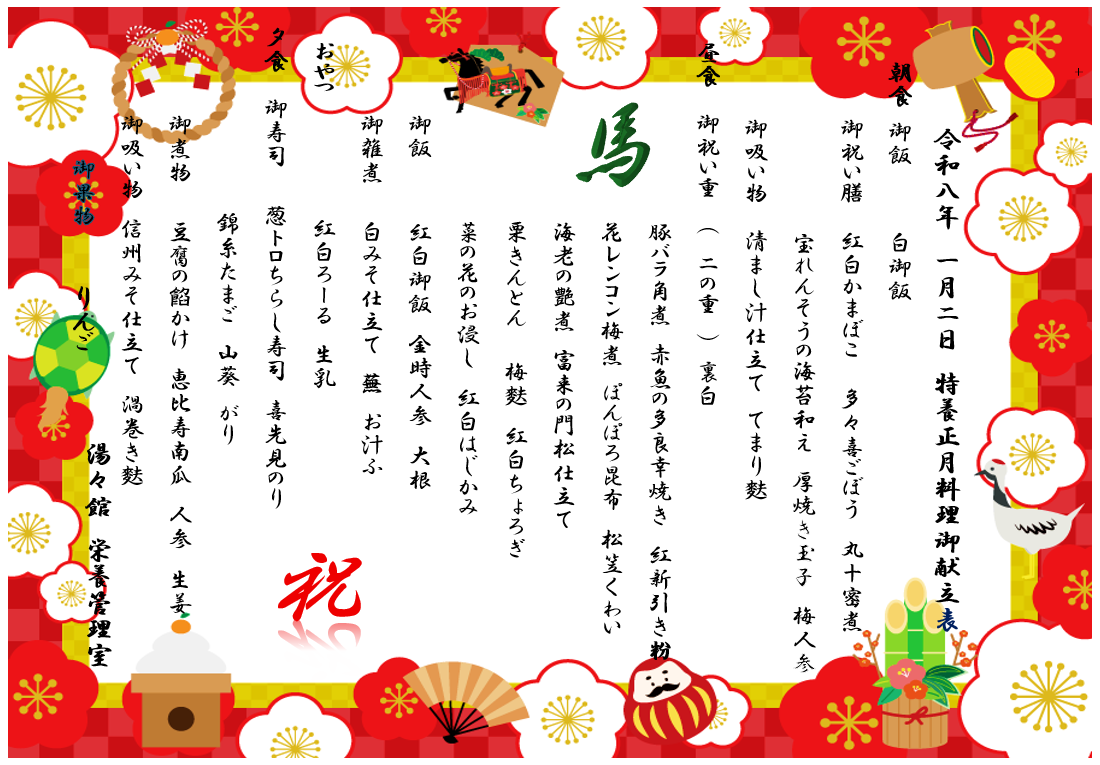 令和八年　一月二日　特養正月料理御献立表
朝食　御飯　白御飯
御祝い膳　紅白かまぼこ　多々喜ごぼう　丸十密煮
宝れんそうの海苔和え　厚焼き玉子　梅人参
御吸い物　清まし汁仕立て　てまり麩
昼食　御祝い重　（　二の重　）　裏白
豚バラ角煮　赤魚の多良幸焼き　紅新引き粉
花レンコン梅煮　ぽんぽろ昆布　松笠くわい
海老の艶煮　富来の門松仕立て
馬
栗きんとん　梅麩　紅白ちょろぎ
菜の花のお浸し　紅白はじかみ
御飯　紅白御飯　金時人参　大根
御雑煮　白みそ仕立て　蕪　お汁ふ
おやつ　紅白ろーる　生乳
夕食　御寿司　葱トロちらし寿司　喜先見のり
錦糸たまご　山葵　がり
御煮物　豆腐の餡かけ　恵比寿南瓜　人参　生姜
御吸い物　信州みそ仕立て　渦巻き麩
御果物　りんご
祝
湯々館　栄養管理室